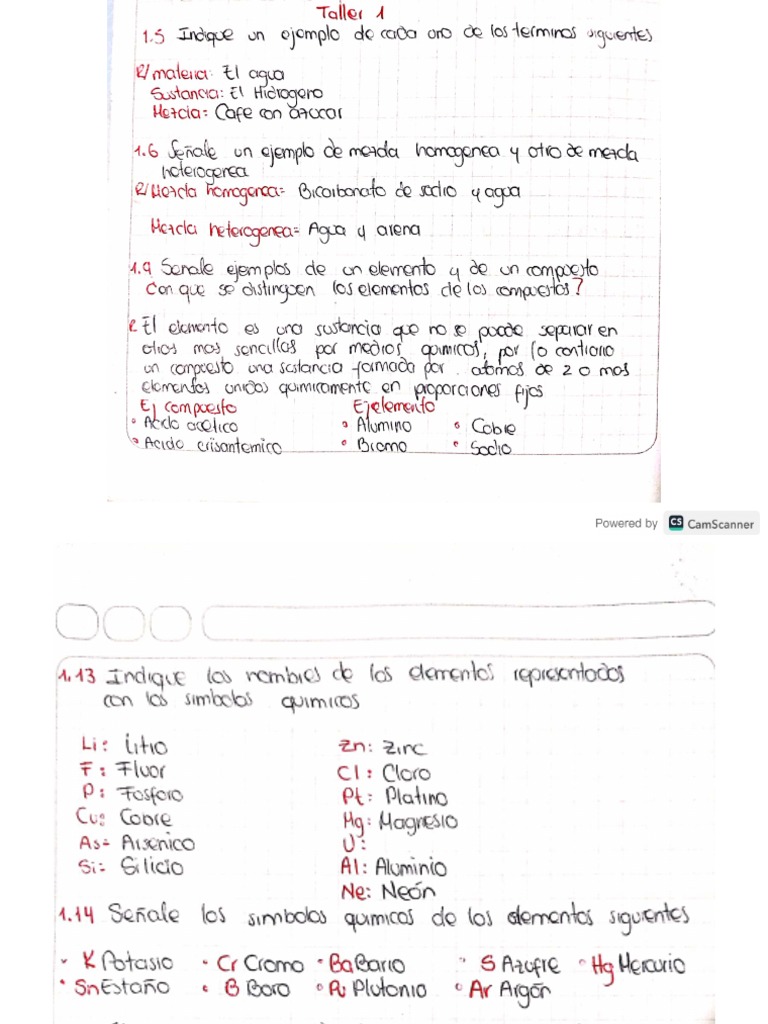 Taller 1
1.5 Indique un ejemplo de cada uno de los terminos siguientes
R/ materia: El agua
Sustancia: El Hidrogero
Mezcla: Cafe con azucar
1.6 Señale un ejemplo de mezcla homogenea y otro de mezcla
heterogenea
R/ Mezcla homogenea= Bicarbonato de sodio y agua
Mezcla heterogenea= Agua y arena
1.9 Senale ejemplos de un elemento y de un compuesto
Con que se distinguen los elementos de los compuestos?
R El elemento es una sustancia que no se puede separar en
otros mas sencillas por medios quimicos, por lo contrario
un compuesto una sustancia formada por atomos de 2 o mas
elementos unidos quimicamente en proporciones fijos
Ej compuesto Ej elemento
° Acido acetico ° Alumino ° Cobre
° Acido crisantemico ° Bromo ° Sodio
Powered by CS CamScanner
1.13 Indique los nombres de los elementos representados
con los simbolos quimicos
Li: Litio Zn: Zinc
F: Fluor Cl: Cloro
P: Fosforo Pt: Platino
Cu: Cobre Mg: Magnesio
As= Arsenico U:
Si= Silicio Al: Aluminio
Ne: Neón
1.14 Señale los simbolos quimicos de los elementos siguientes
· K Potasio · Cr Cromo · Ba Bario · S Azufre ° Hg Mercurio
· Sn Estaño ° B Boro ° Pu Plutonio ° Ar Argón